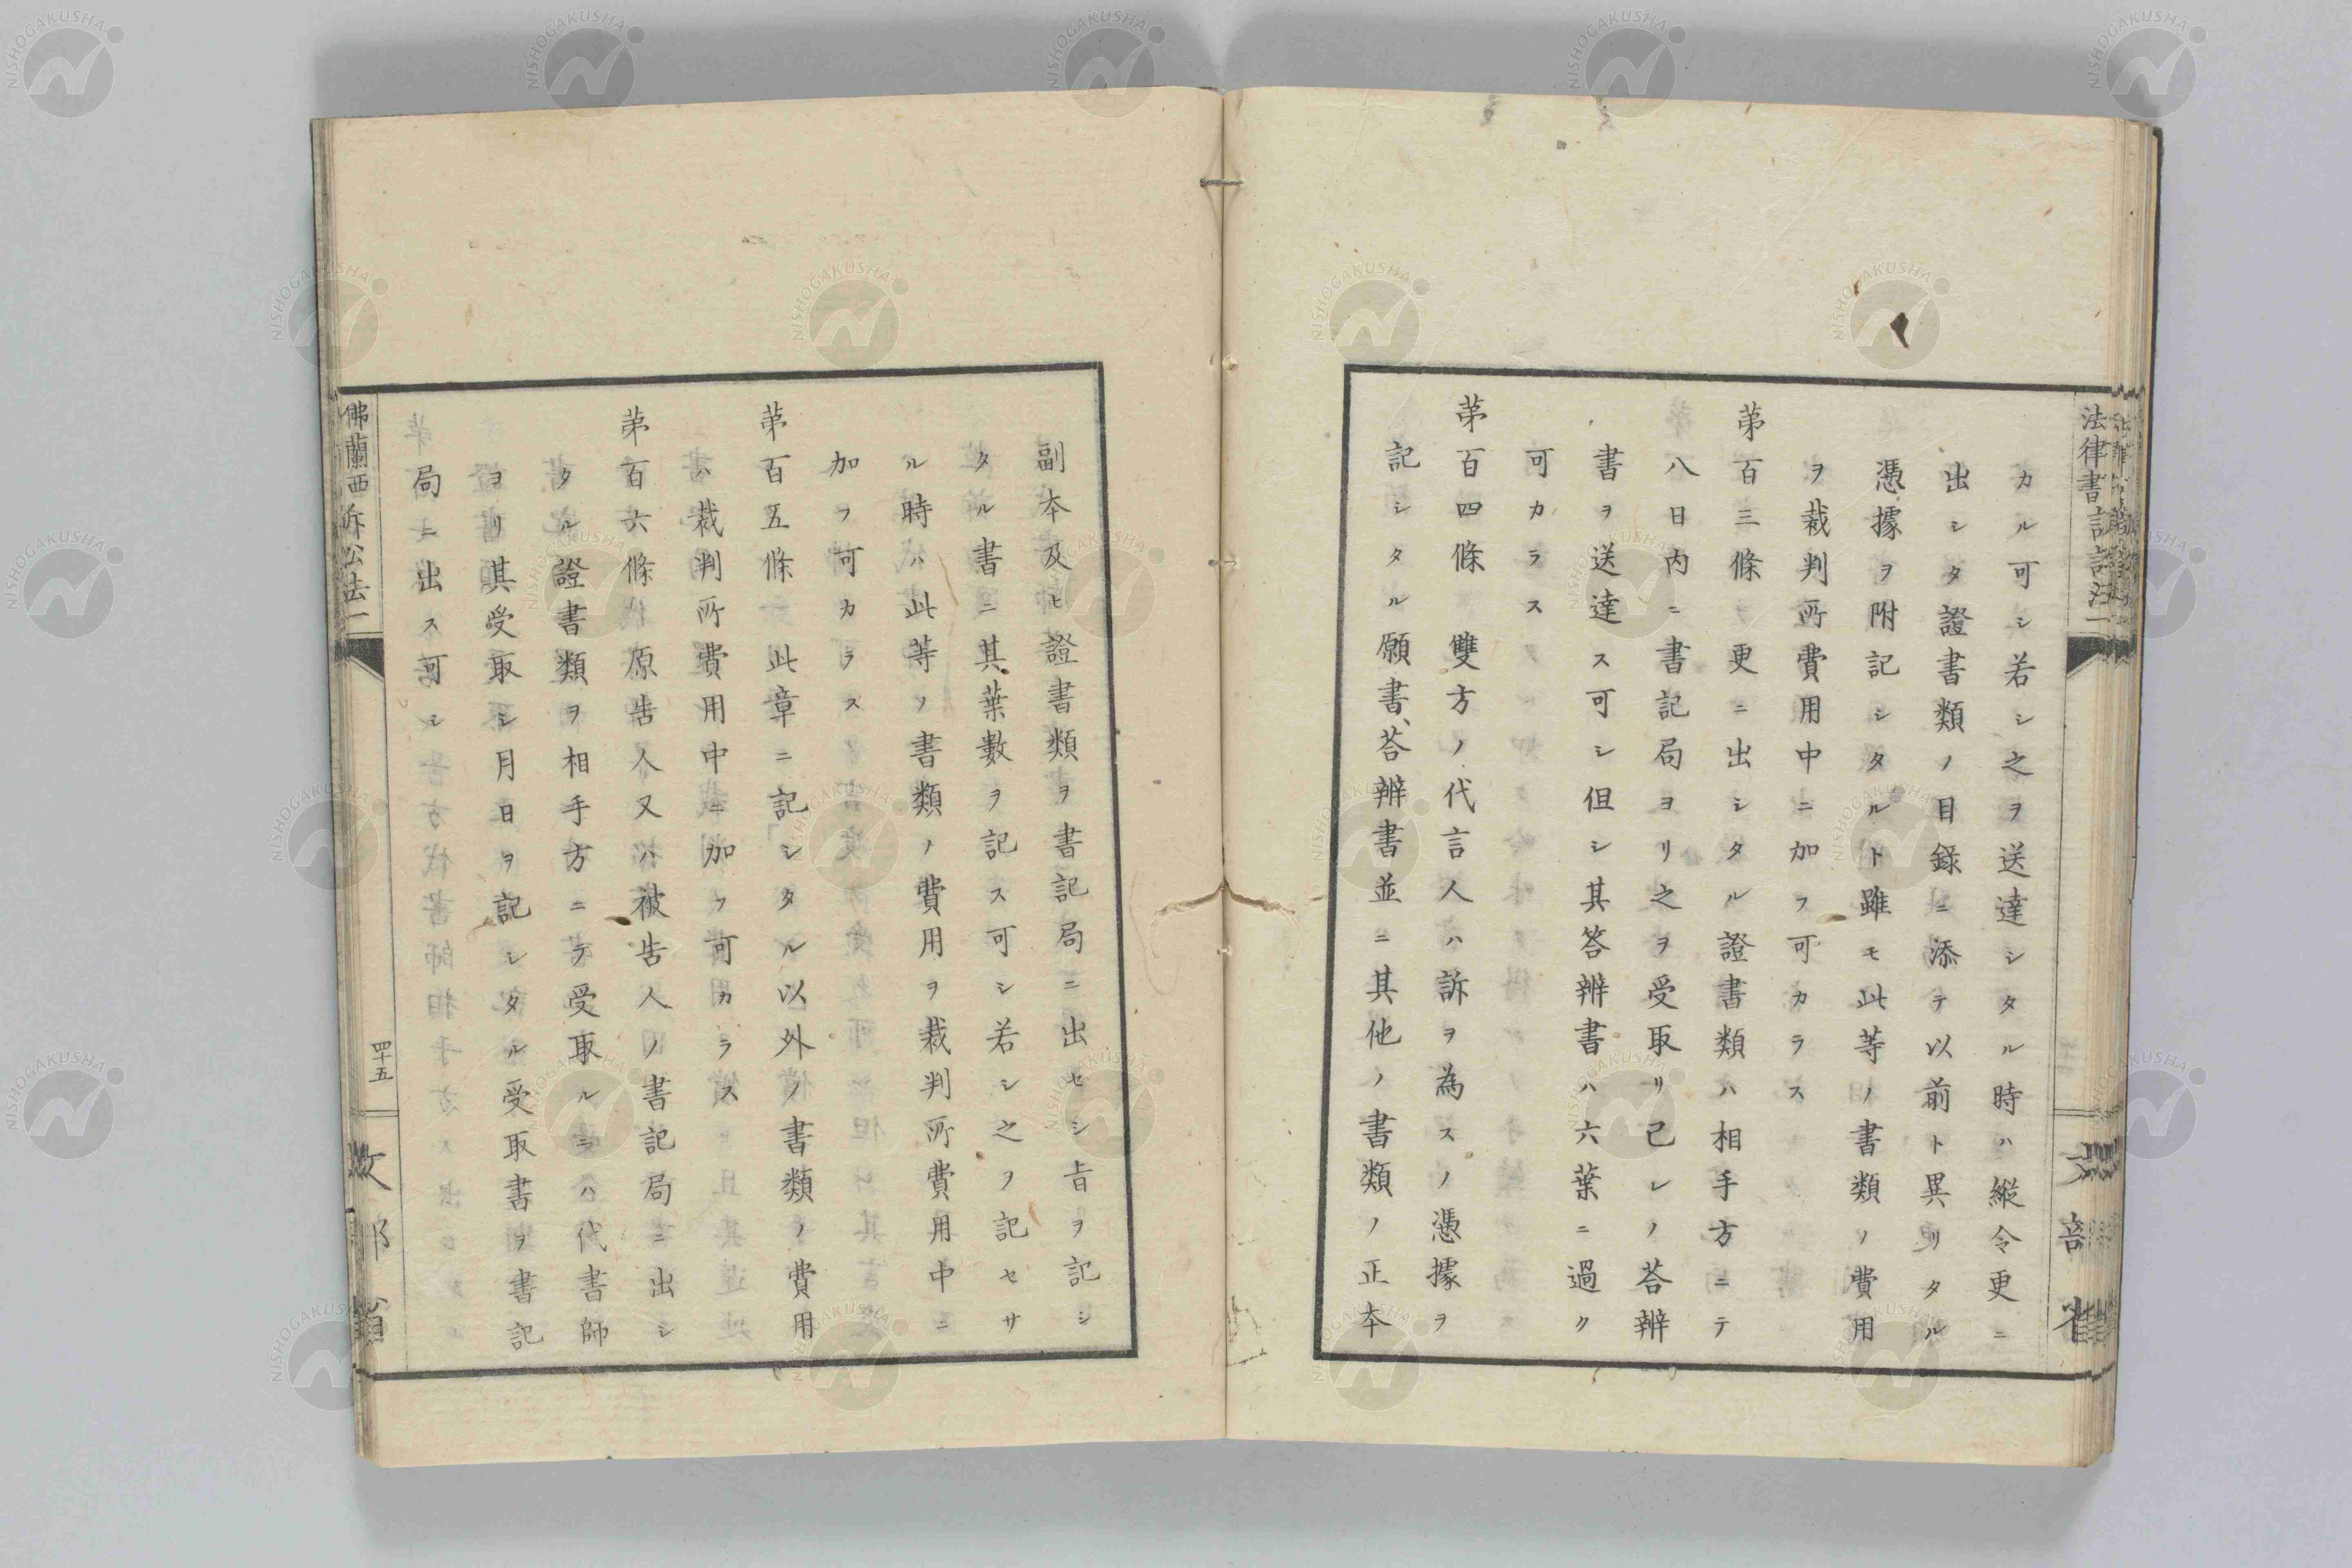 カル可シ若シ之ヲ送達シタル時ハ縱令更ニ
出シタ證書類ノ目錄ニ添テ以前ト異リタル
憑據ヲ附記シタルト雖モ此等ノ書類ノ費用
ヲ裁判所費用中ニ加フ可カラス
第百三條 更ニ出シタル證書類ハ相手方ニテ
八日内ニ書記局ヨリ之ヲ受取リ己レノ荅辨
書ヲ送達ス可シ但シ其答辨書ハ六葉ニ過ク
可カラス
第百四條 雙方ノ代言人ハ訴ヲ為スノ憑據ヲ
記シタル願書、荅辨書並ニ其他ノ書類ノ正本
副本及ヒ證書類ヲ書記局ニ出セシ旨ヲ記シ
タル書ニ其葉數ヲ記ス可シ若シ之ヲ記セサ
ル時ハ此等ノ書類ノ費用ヲ裁判所費用中ニ
加フ可カラス
第百五條 此章ニ記シタル以外ノ書類ノ費用
ハ裁判所費用中ニ加フ可カラス
第百六條 原告人又ハ被告人ノ書記局ニ出シ
タル證書類ヲ相手方ニテ受取ルニハ代書師
ヨリ其受取シ月日ヲ記シタル受取書ヲ書記
局ニ出ス可シ
佛蘭西訴訟法一
四十五
文部省
NISHOGAKUSHA